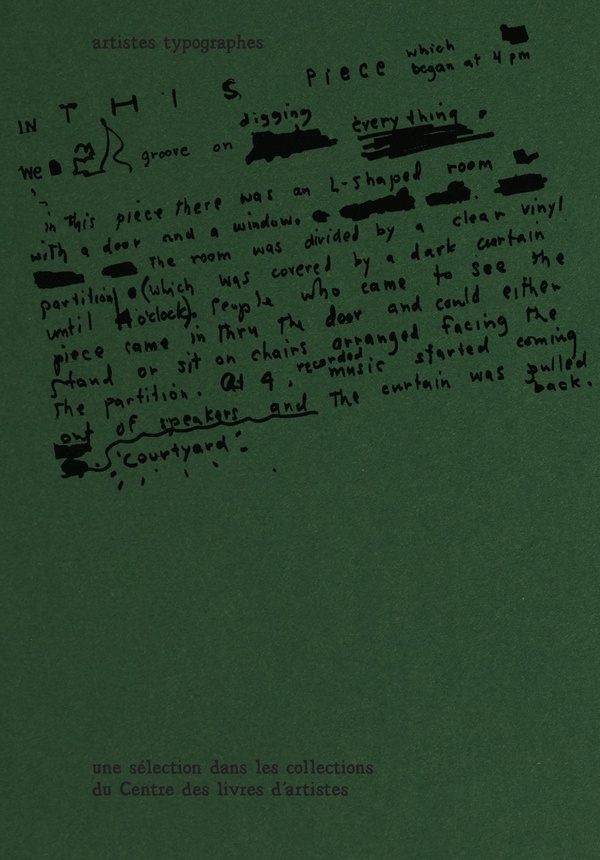 artistes typographes
IN THIS piece which
began at 4 pm
We groove on digging everything.
in this piece there was an L-shaped room
with a door and a window.
The room was divided by a clear vinyl
partition (which was covered by a dark curtain
until 4 o'clock). People who came to see the
piece came in thru the door and could either
stand or sit on chairs arranged facing the
the partition. At 4, recorded music started coming
out of speakers and The curtain was pulled
back.
"Courtyard"
une sélection dans les collections
du Centre des livres d'artistes